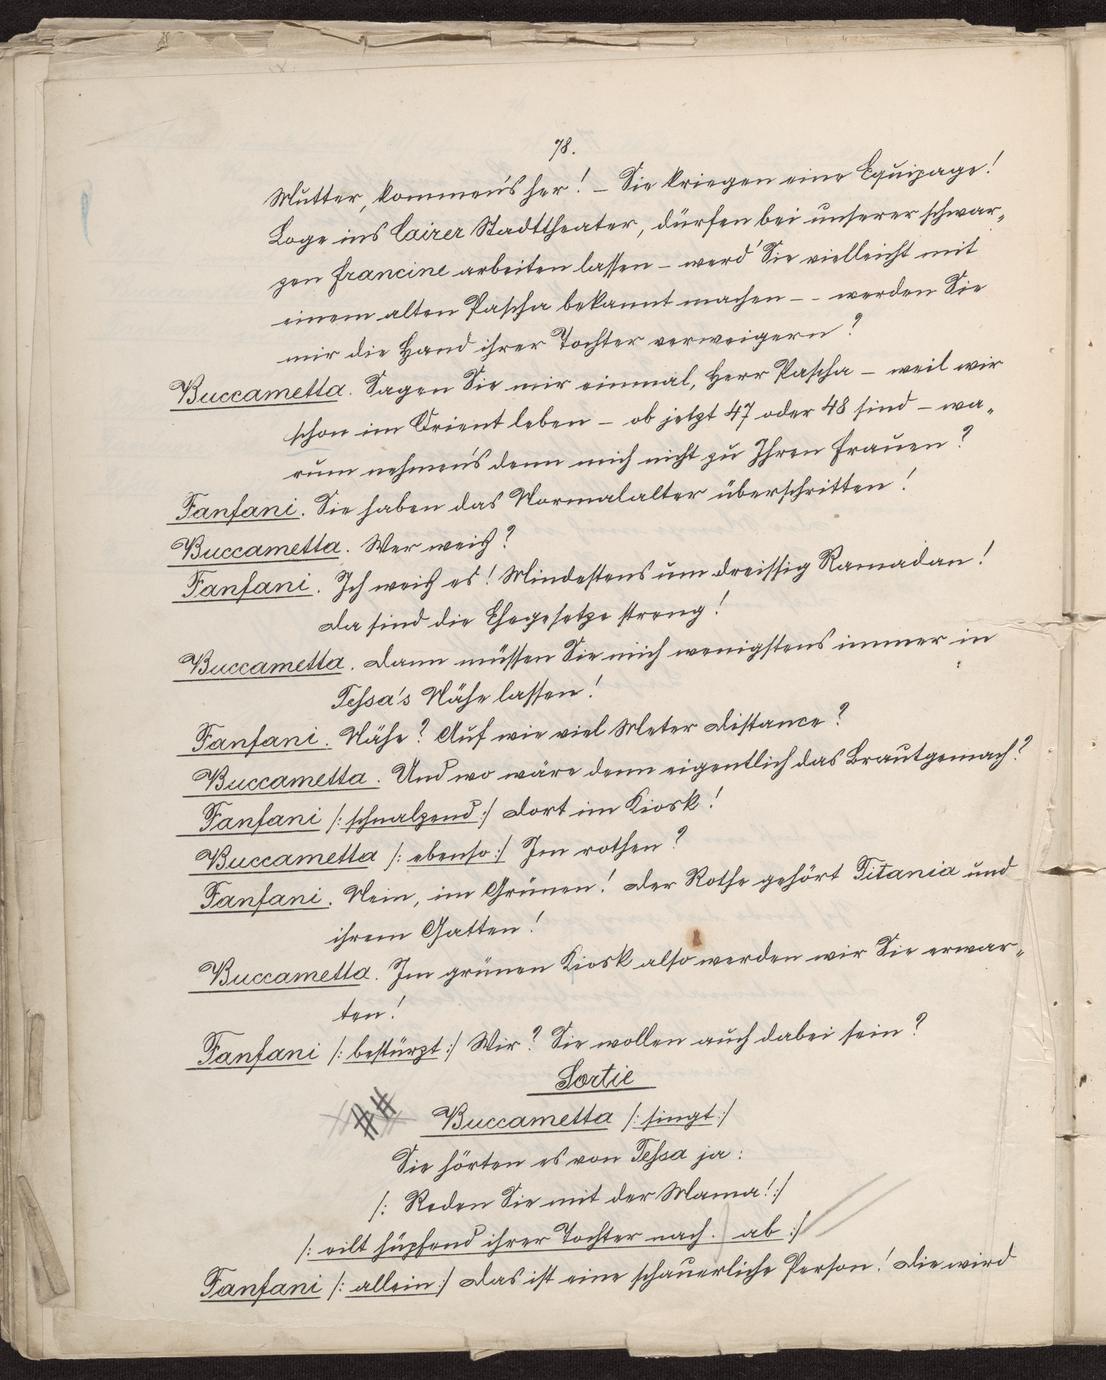 78.
Mutter, kommen's her! – Sie kriegen eine Equipage!
Loge ins Cairer Stadttheater, dürfen bei unserer schwar-
zen Francine arbeiten lassen – werd' Sie vielleicht mit
einem alten Pascha bekannt machen – – werden Sie
mir die Hand ihrer Tochter verweigern?
Buccametta. Sagen Sie mir einmal, Herr Pascha – weil wir
schon im Orient leben – ob jetzt 47 oder 48 sind – wa-
rum nehmen's denn mich nicht zu Ihren Frauen?
Fanfani. Sie haben das Normalalter überschritten!
Buccametta. Wer weiß?
Fanfani. Ich weiß es! Mindestens um dreissig Ramadan!
Da sind die Ehegesetze streng!
Buccametta. Dann müssen Sie mich wenigstens immer in
Tessa's Nähe lassen!
Fanfani. Nähe? Auf wie viel Meter Distance?
Buccametta. Und wo wäre denn eigentlich das Brautgemach?
Fanfani /: schnalzend :/ Dort im Kiosk!
Buccametta /: ebenso :/ Im rothen?
Fanfani. Nein, im Grünen! Der Rothe gehört Titania und
ihrem Gatten!
Buccametta. Im grünen Kiosk also werden wir Sie erwar-
ten!
Fanfani /: bestürzt :/ Wir? Sie wollen auch dabei sein?
Sortie
Buccametta /: singt :/
Sie hörten es von Tessa ja:
/: Reden Sie mit der Mama! :/
/: eilt hüpfend ihrer Tochter nach. ab :/
Fanfani /: allein :/ Das ist eine schauerliche Person! Die wird